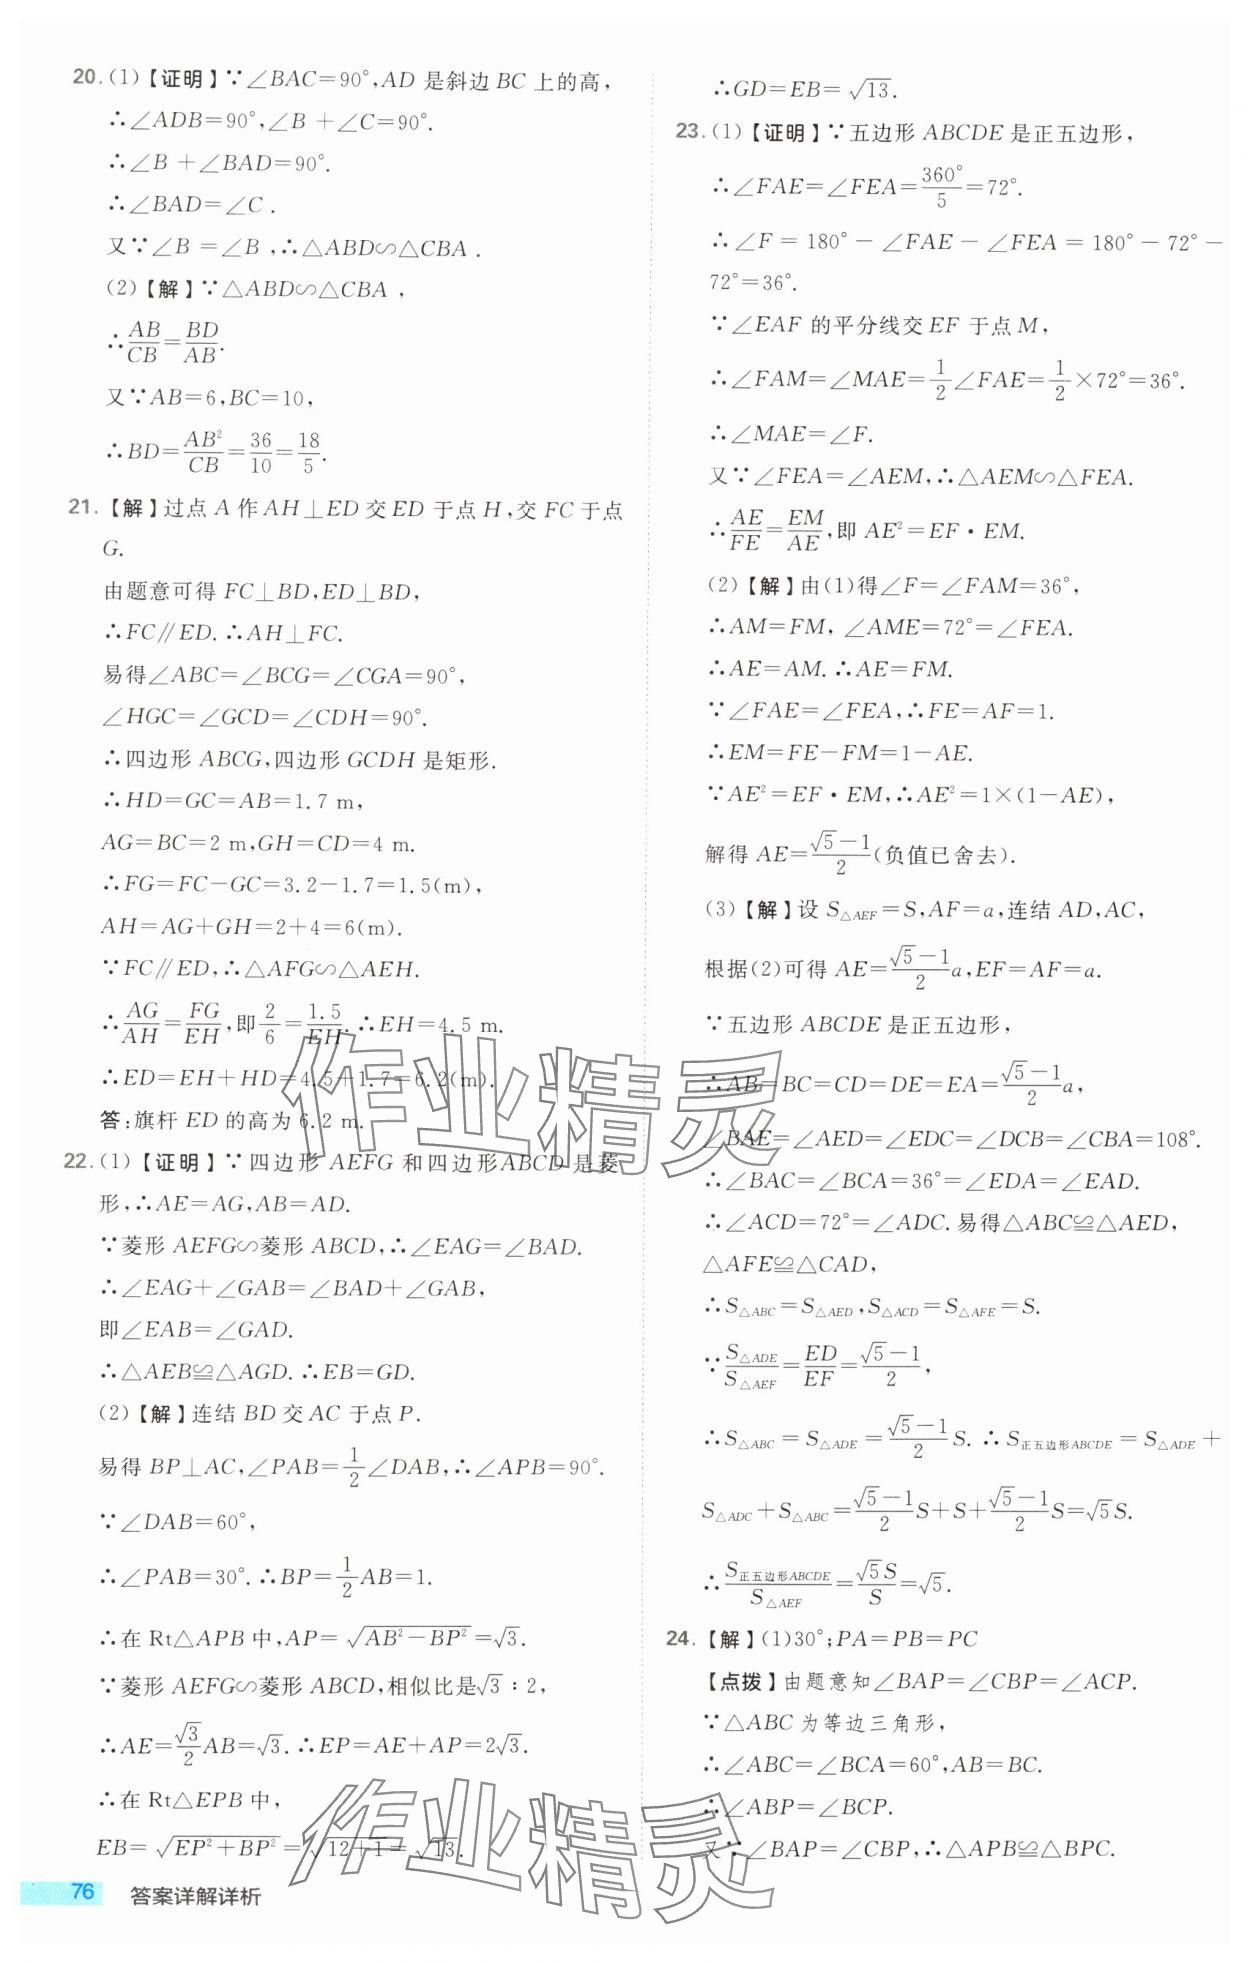 20.(1)【证明】∵∠BAC=90°,AD 是斜边 BC 上的高,
∴∠ADB=90°,∠B+∠C=90°.
∴∠B+∠BAD=90°.
∴∠BAD=∠C.
又∵∠B=∠B,∴△ABD∽△CBA.
(2)【解】∵△ABD∽△CBA,
∴AB/CB=BD/AB.
又∵AB=6,BC=10,
∴BD=AB²/CB=36/10=18/5.
21.【解】过点 A 作 AH⊥ED 交 ED 于点 H,交 FC 于点
G.
由题意可得 FC⊥BD,ED⊥BD,
∴FC∥ED.∴AH⊥FC.
易得∠ABC=∠BCG=∠CGA=90°,
∠HGC=∠GCD=∠CDH=90°.
∴四边形 ABCG,四边形 GCDH 是矩形.
∴HD=GC=AB=1.7 m,
AG=BC=2 m,GH=CD=4 m.
∴FG=FC-GC=3.2-1.7=1.5(m),
AH=AG+GH=2+4=6(m).
∵FC∥ED,∴△AFG∽△AEH.
∴AG/AH=FG/EH,即2/6=1.5/EH.∴EH=4.5 m.
∴ED=EH+HD=4.5+1.7=6.2(m).
答:旗杆 ED 的高为 6.2 m.
22.(1)【证明】∵四边形 AEFG 和四边形ABCD 是菱
形,∴AE=AG,AB=AD.
∵菱形 AEFG∽菱形 ABCD,∴∠EAG=∠BAD.
∴∠EAG+∠GAB=∠BAD+∠GAB,
即∠EAB=∠GAD.
∴△AEB≌△AGD.∴EB=GD.
(2)【解】连结 BD 交 AC 于点 P.
易得 BP⊥AC,∠PAB=1/2∠DAB,∴∠APB=90°.
∵∠DAB=60°,
∴∠PAB=30°.∴BP=1/2AB=1.
∴在 Rt△APB 中,AP=√(AB²-BP²)=√3.
∵菱形 AEFG∽菱形 ABCD,相似比是√3∶2,
∴AE=√3/2AB=√3.∴EP=AE+AP=2√3.
∴在 Rt△EPB 中,
EB=√(EP²+BP²)=√(12+1)=√13.
76 答案详解详析
∴GD=EB=√13.
23.(1)【证明】∵五边形 ABCDE 是正五边形,
∴∠FAE=∠FEA=360°/5=72°.
∴∠F=180°-∠FAE-∠FEA=180°-72°-
72°=36°.
∵∠EAF 的平分线交 EF 于点 M,
∴∠FAM=∠MAE=1/2∠FAE=1/2×72°=36°.
∴∠MAE=∠F.
又∵∠FEA=∠AEM,∴△AEM∽△FEA.
∴AE/FE=EM/AE,即 AE²=EF·EM.
(2)【解】由(1)得∠F=∠FAM=36°,
∴AM=FM,∠AME=72°=∠FEA.
∴AE=AM.∴AE=FM.
∵∠FAE=∠FEA,∴FE=AF=1.
∴EM=FE-FM=1-AE.
∵AE²=EF·EM,∴AE²=1×(1-AE),
解得 AE=(√5-1)/2(负值已舍去).
(3)【解】设 S△AEF=S,AF=a,连结 AD,AC,
根据(2)可得 AE=(√5-1)/2a,EF=AF=a.
∵五边形 ABCDE 是正五边形,
∴AB=BC=CD=DE=EA=(√5-1)/2a,
∠BAE=∠AED=∠EDC=∠DCB=∠CBA=108°.
∴∠BAC=∠BCA=36°=∠EDA=∠EAD.
∴∠ACD=72°=∠ADC.易得△ABC≌△AED,
△AFE≌△CAD,
∴S△ABC=S△AED,S△ACD=S△AFE=S.
∵S△ADE/S△AEF=ED/EF=(√5-1)/2,
∴S△ABC=S△ADE=(√5-1)/2S.∴S正五边形ABCDE=S△ADE+
S△ADC+S△ABC=(√5-1)/2S+S+(√5-1)/2S=√5S.
∴S正五边形ABCDE/S△AEF=√5S/S=√5.
24.【解】(1)30°;PA=PB=PC
【点拨】由题意知∠BAP=∠CBP=∠ACP.
∵△ABC 为等边三角形,
∴∠ABC=∠BCA=60°,AB=BC.
∴∠ABP=∠BCP.
又∵∠BAP=∠CBP,∴△APB≌△BPC.
作业精灵
作业精灵